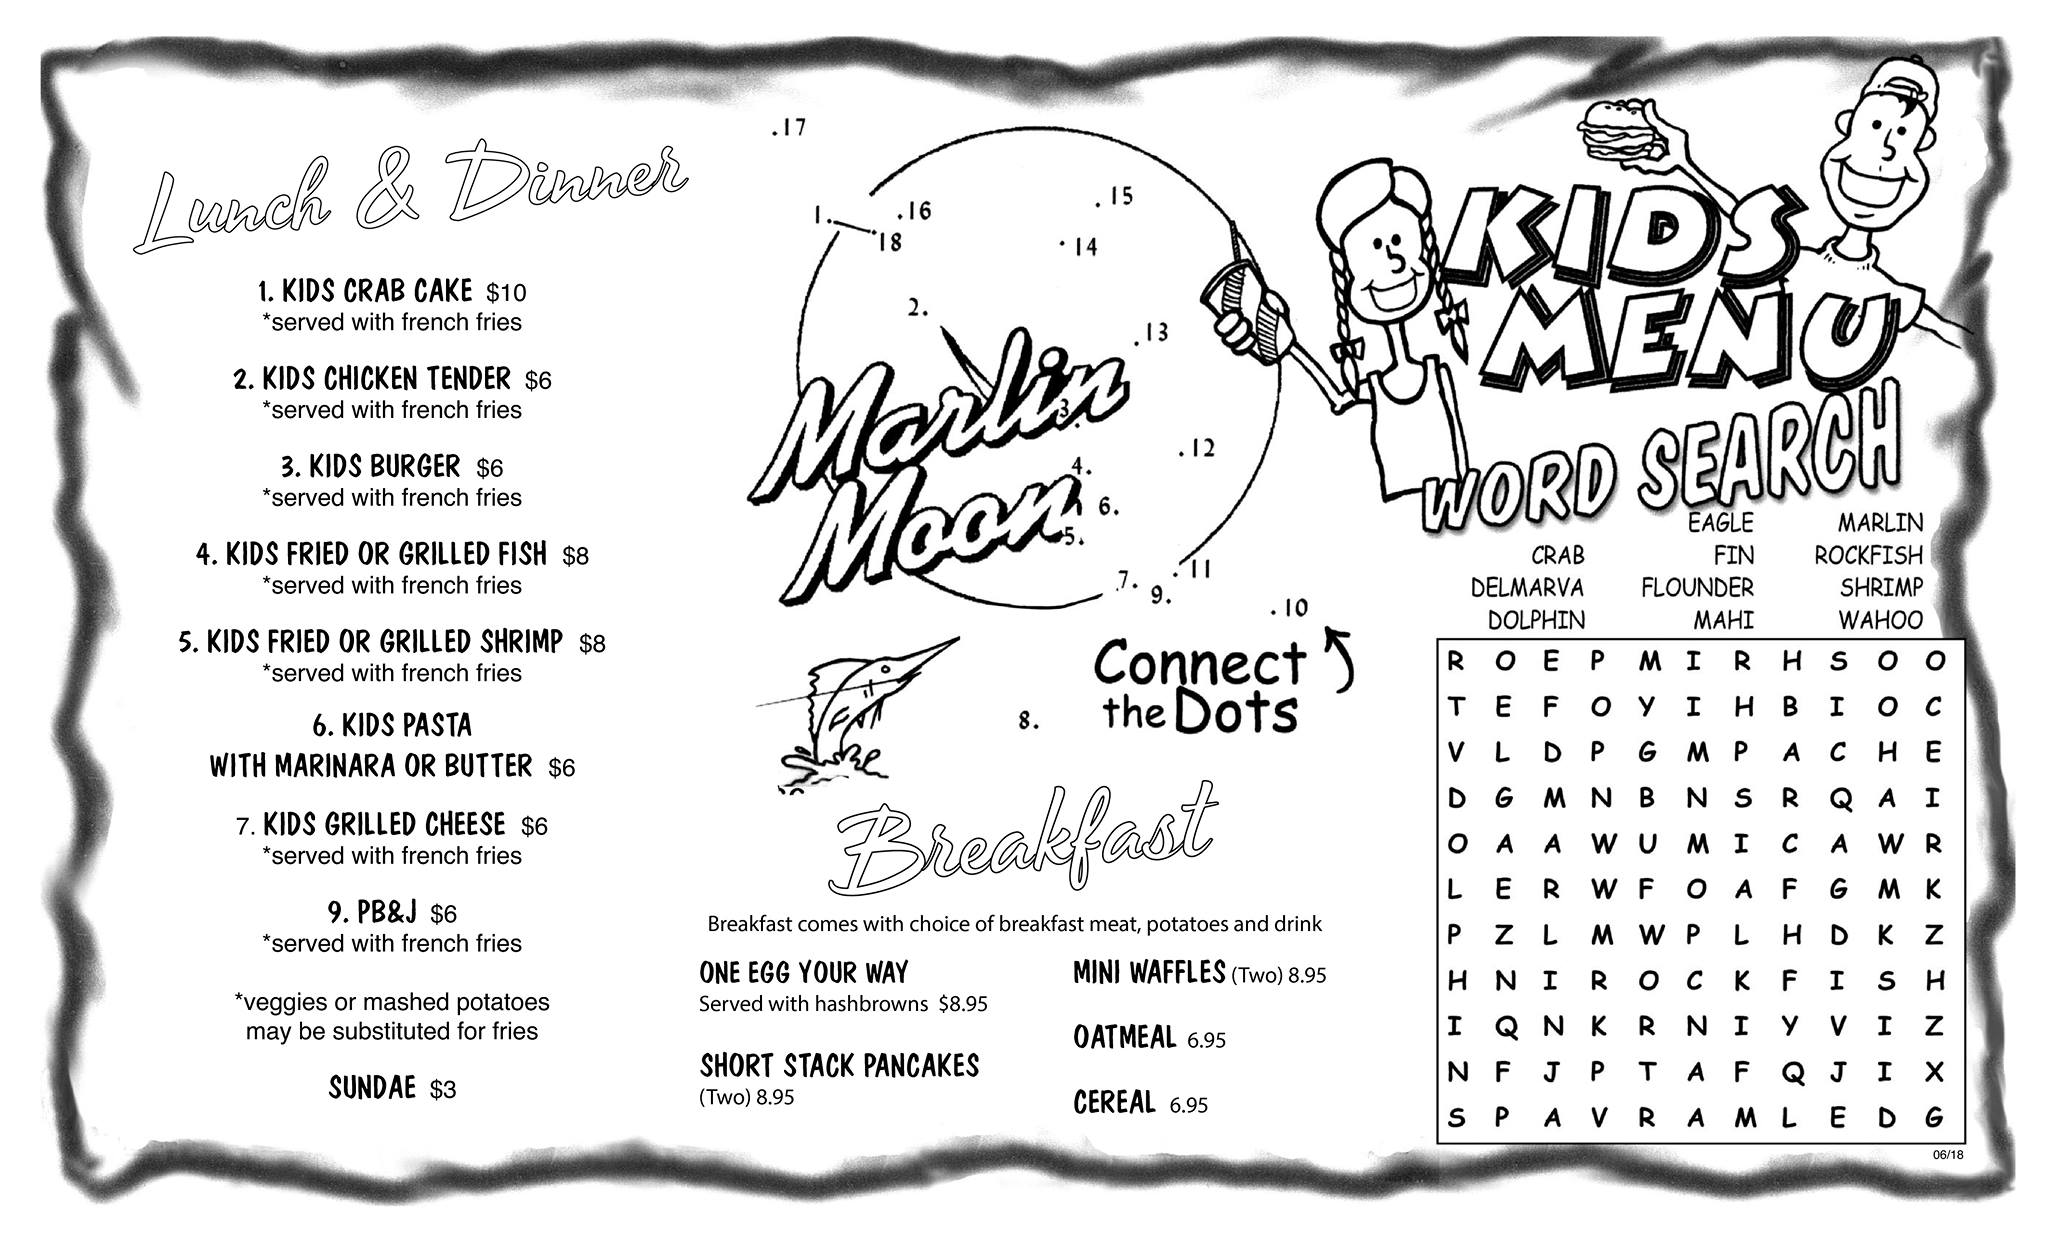 Lunch & Dinner
1. KIDS CRAB CAKE $10
*served with french fries
2. KIDS CHICKEN TENDER $6
*served with french fries
3. KIDS BURGER $6
*served with french fries
4. KIDS FRIED OR GRILLED FISH $8
*served with french fries
5. KIDS FRIED OR GRILLED SHRIMP $8
*served with french fries
6. KIDS PASTA
WITH MARINARA OR BUTTER $6
7. KIDS GRILLED CHEESE $6
*served with french fries
9. PB&J $6
*served with french fries
*veggies or mashed potatoes
may be substituted for fries
SUNDAE $3
.17
.15
1. .16
18 .14
2.
.13
Marlin
3
.12
4.
Moon
6.
5.
7. .11
9.
.10
Connect
the Dots
8.
Breakfast
Breakfast comes with choice of breakfast meat, potatoes and drink
ONE EGG YOUR WAY
Served with hashbrowns $8.95
SHORT STACK PANCAKES
(Two) 8.95
MINI WAFFLES (Two) 8.95
OATMEAL 6.95
CEREAL 6.95
KIDS
MENU
WORD SEARCH
EAGLE MARLIN
CRAB FIN ROCKFISH
DELMARVA FLOUNDER SHRIMP
DOLPHIN MAHI WAHOO
R O E P M I R H S O O
T E F O Y I H B I O C
V L D P G M P A C H E
D G M N B N S R Q A I
O A A W U M I C A W R
L E R W F O A F G M K
P Z L M W P L H D K Z
H N I R O C K F I S H
I Q N K R N I Y V I Z
N F J P T A F Q J I X
S P A V R A M L E D G
06/18